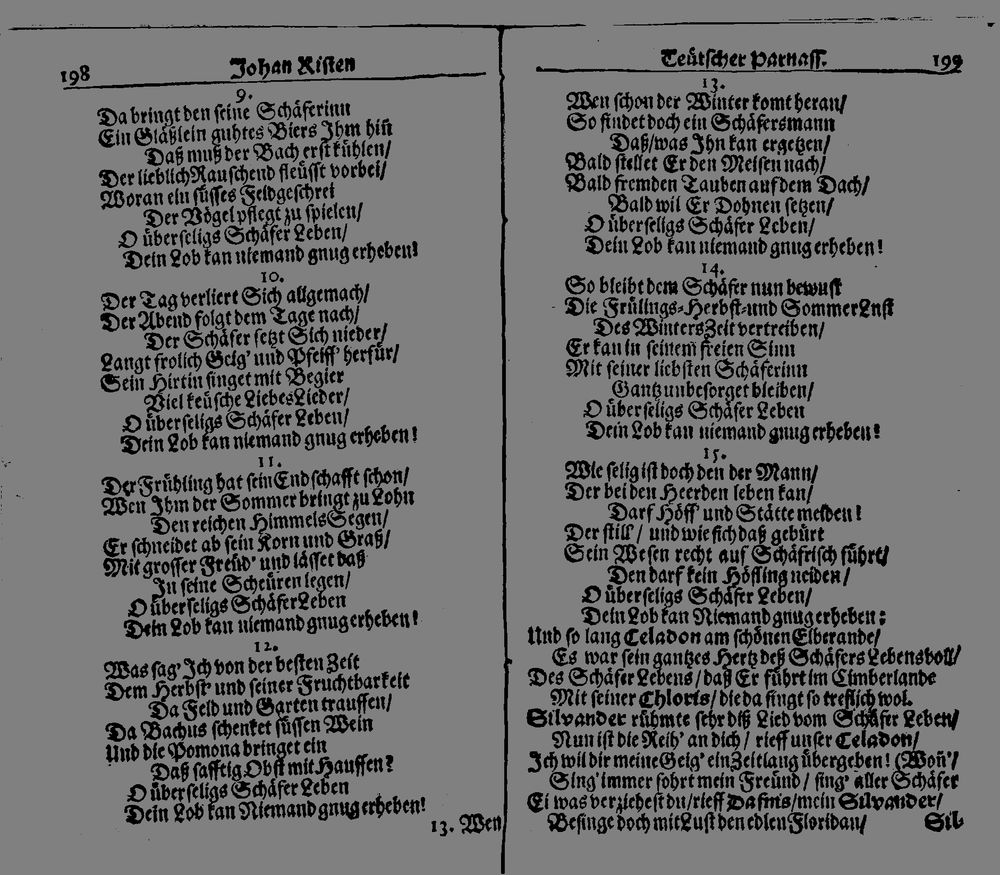 198
Johan Risten
9.
Da bringt den seine Schäferinn
Ein Gläßlein guhtes Biers Jhm hin̄
Daß muß der Bach erst kühlen/
Der lieblich Rauschend fleüsst vorbei/
Woran ein süsses Feldgeschrei
Der Vögel pflegt zu spielen/
O überseligs Schäfer Leben/
Dein Lob kan niemand gnug erheben!
10.
Der Tag verliert Sich allgemach/
Der Abend folgt dem Tage nach/
Der Schäfer setzt Sich nieder/
Langt frolich Geig' und Pfeiff' herfür/
Sein Hirtin singet mit Begier
Viel keüsche LiebesLieder/
O überseligs Schäfer Leben/
Dein Lob kan niemand gnug erheben!
11.
Der Frühling hat sein Endschafft schon/
Wen Jhm der Sommer bringt zu Lohn
Den reichen HimmelsSegen/
Er schneidet ab sein Korn und Graß/
Mit grosser Freüd' und lässet daß
Jn seine Scheüren legen/
O überseligs SchäferLeben
Dein Lob kan niemand gnug erheben!
12.
Was sag' Jch von der besten Zeit
Dem Herbst' und seiner Fruchtbarkeit
Da Feld und Garten trauffen/
Da Bachus schenket süssen Wein
Und die Pomona bringet ein
Daß safftig Obst mit Hauffen?
O überseligs Schäfer Leben
Dein Lob kan Niemand gnug erheben!
13. Wen
Teütscher Parnass.
199
13.
Wen schon der Winter komt heran/
So findet doch ein Schäfersmann
Daß/was Jhn kan ergetzen/
Bald stellet Er den Meisen nach/
Bald fremden Tauben auf dem Dach/
Bald wil Er Dohnen setzen/
O überseligs Schäfer Leben/
Dein Lob kan niemand gnug erheben!
14.
So bleibt dem Schäfer nun bewust
Die Frülings-Herbst-und SommerLust
Des WintersZeit vertreiben/
Er kan in seinem freien Sinn
Mit seiner liebsten Schäferinn
Gantz unbesorget bleiben/
O überseligs Schäfer Leben
Dein Lob kan niemand gnug erheben!
15.
Wie selig ist doch den der Mann/
Der bei den Heerden leben kan/
Darf Höff' und Stätte meiden!
Der still / und wie sich daß gebürt
Sein Wesen recht auf Schäfrisch führt/
Den darf kein Höfling neiden/
O überseligs Schäfer Leben/
Dein Lob kan Niemand gnug erheben:
Und so lang Celadon am schönen Elberande/
Es war sein gantzes Hertz deß Schäfers Lebens voll/
Des Schäfer Lebens/ daß Er führt im Cimberlande
Mit seiner Chloris/ die da singt so treflich wol.
Silvander rühmte sehr diß Lied vom Schäfer Leben/
Nun ist die Reih' an dich / rieff unser Celadon/
Jch wil dir meine Geig' ein Zeitlang übergeben! (Won̄'/
Sing' immer fohrt mein Freünd / sing' aller Schäfer
Ei was verziehest du/rieff Dafnis/mein Silvander/
Besinge doch mit Lust den edlen Floridan/
Sil-